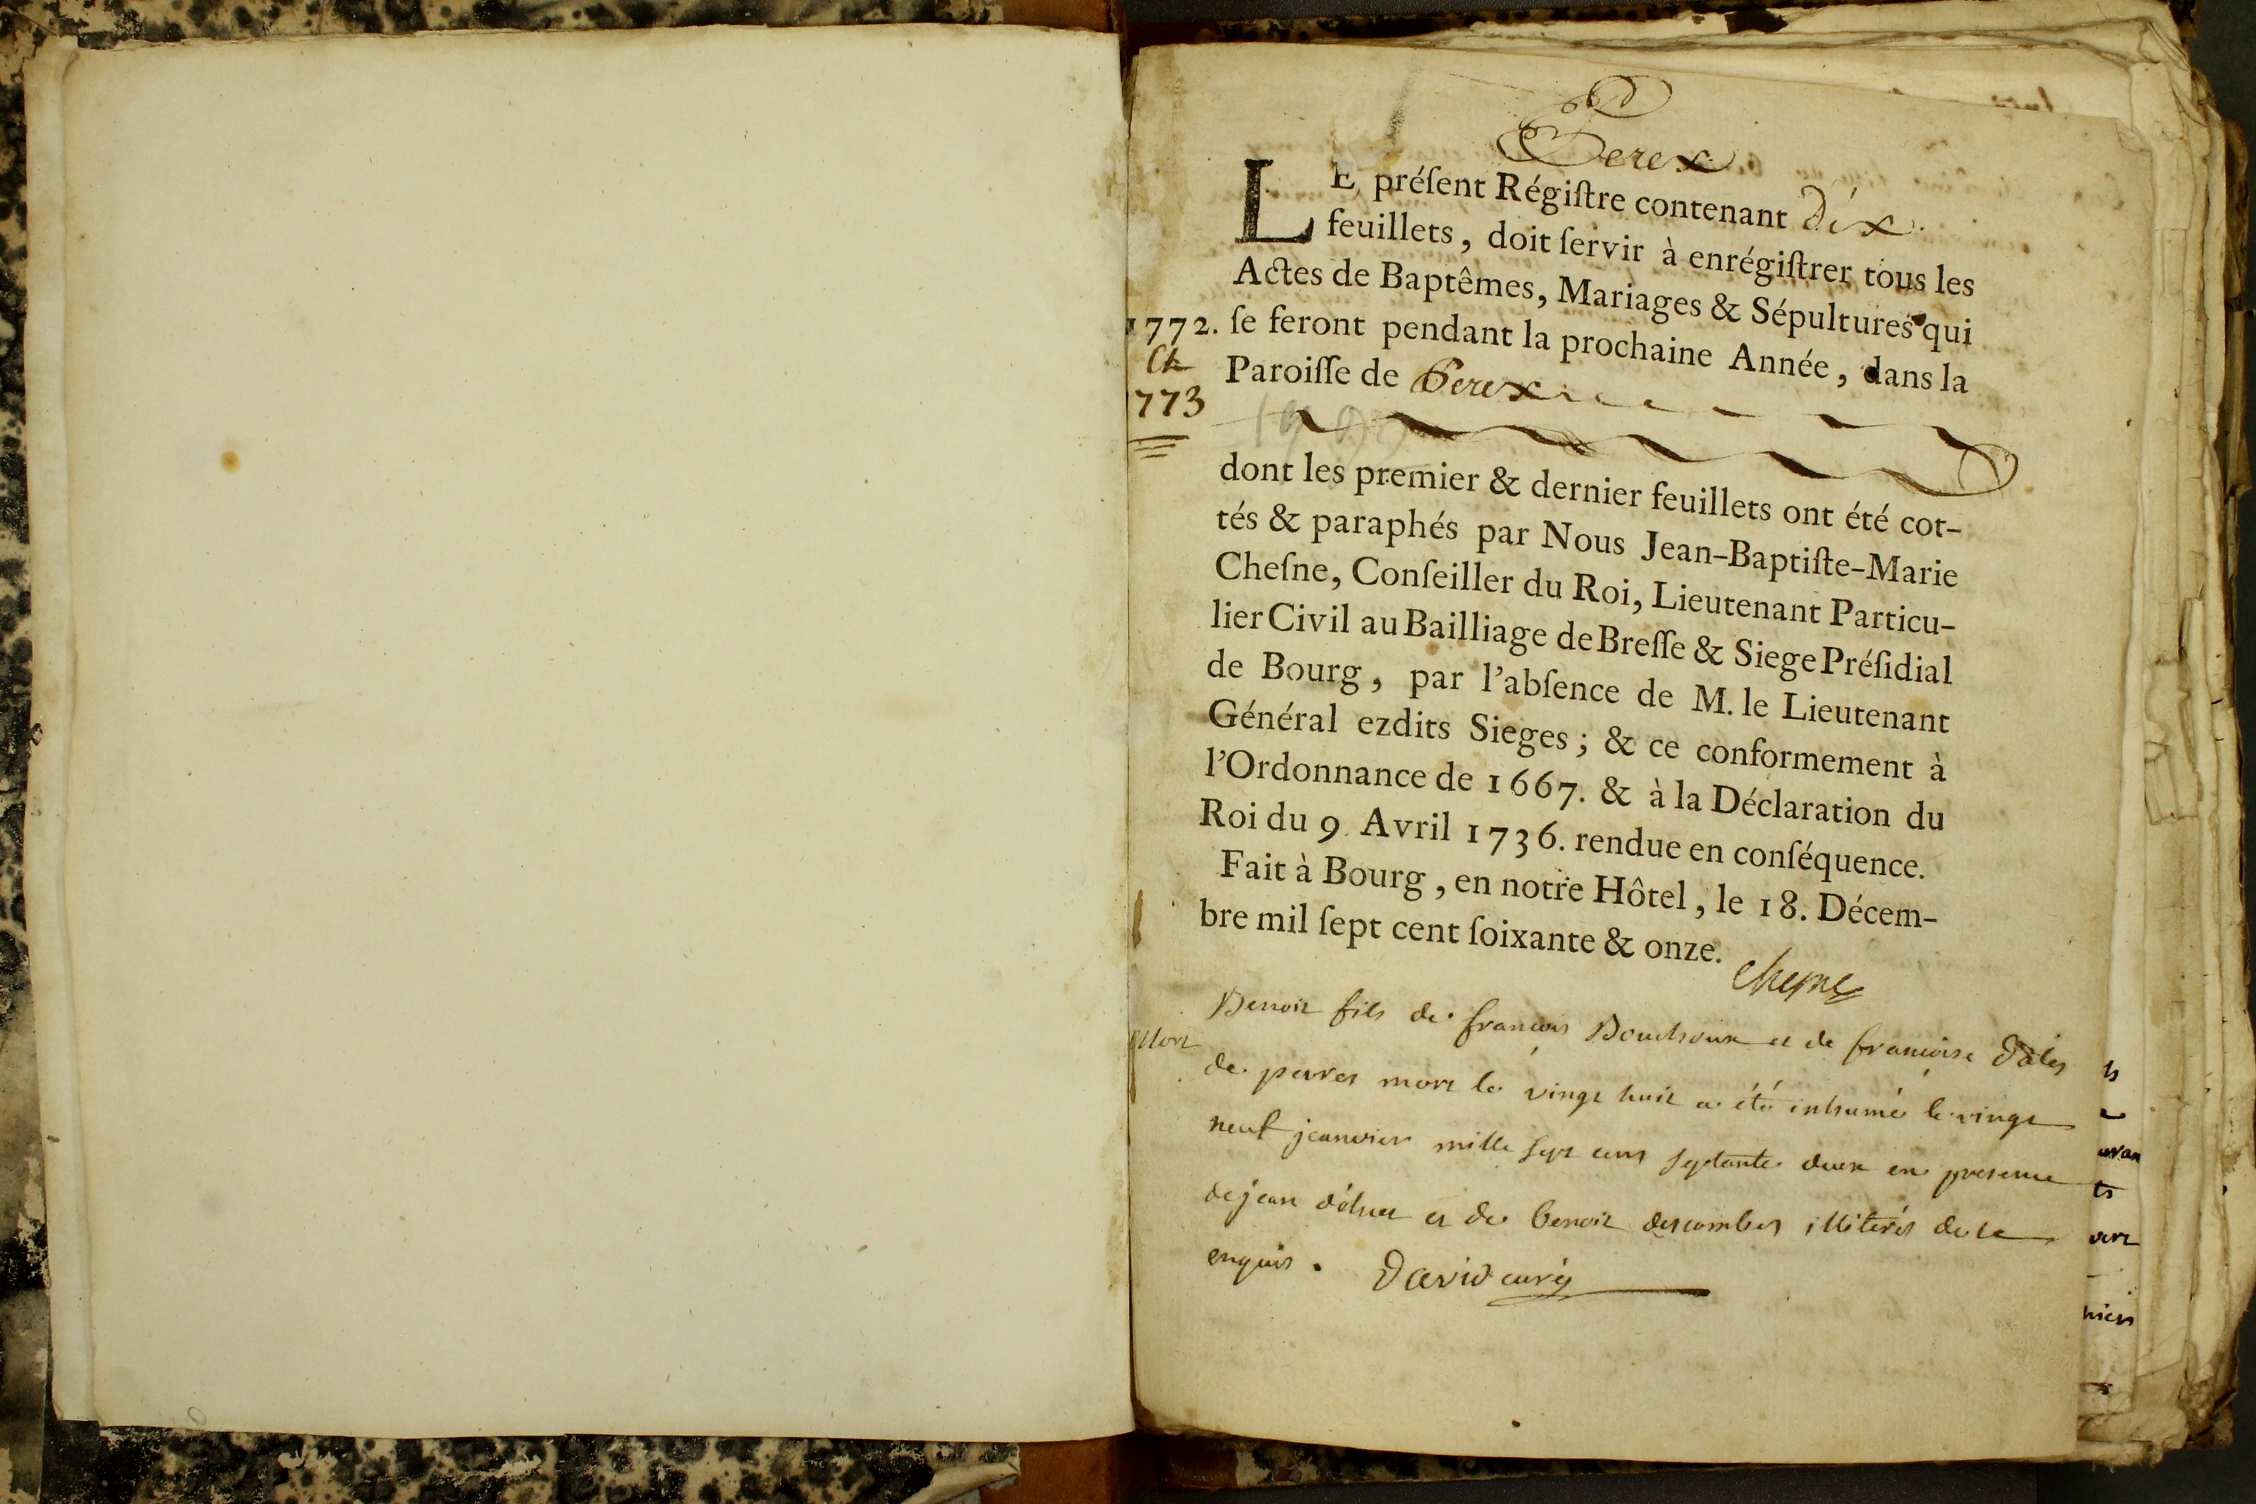 Perex
LE préſent Régiſtre contenant Dix.
feuillets, doit ſervir à enrégiſtrer tous les
Actes de Baptêmes, Mariages & Sépultures qui
1772. ſe feront pendant la prochaine Année, dans la
&
1773
Paroiſſe de Perex
dont les premier & dernier feuillets ont été cot-
tés & paraphés par Nous Jean-Baptiſte-Marie
Cheſne, Conſeiller du Roi, Lieutenant Particu-
lier Civil au Bailliage de Breſſe & Siege Préſidial
de Bourg, par l'abſence de M. le Lieutenant
Général ezdits Sieges; & ce conformement à
l'Ordonnance de 1667. & à la Déclaration du
Roi du 9. Avril 1736. rendue en conſéquence.
Fait à Bourg, en notre Hôtel, le 18. Décem-
bre mil ſept cent ſoixante & onze.
Chesne
Mort
Benoit fils de françois Bouchoux et de françoise
de perex mort le vingt huit a été inhumé le vingt
neuf jeanvier mille sept cens septante deux en presence
de jean et de benoit descombes illiterés de ce
enquis. David curé